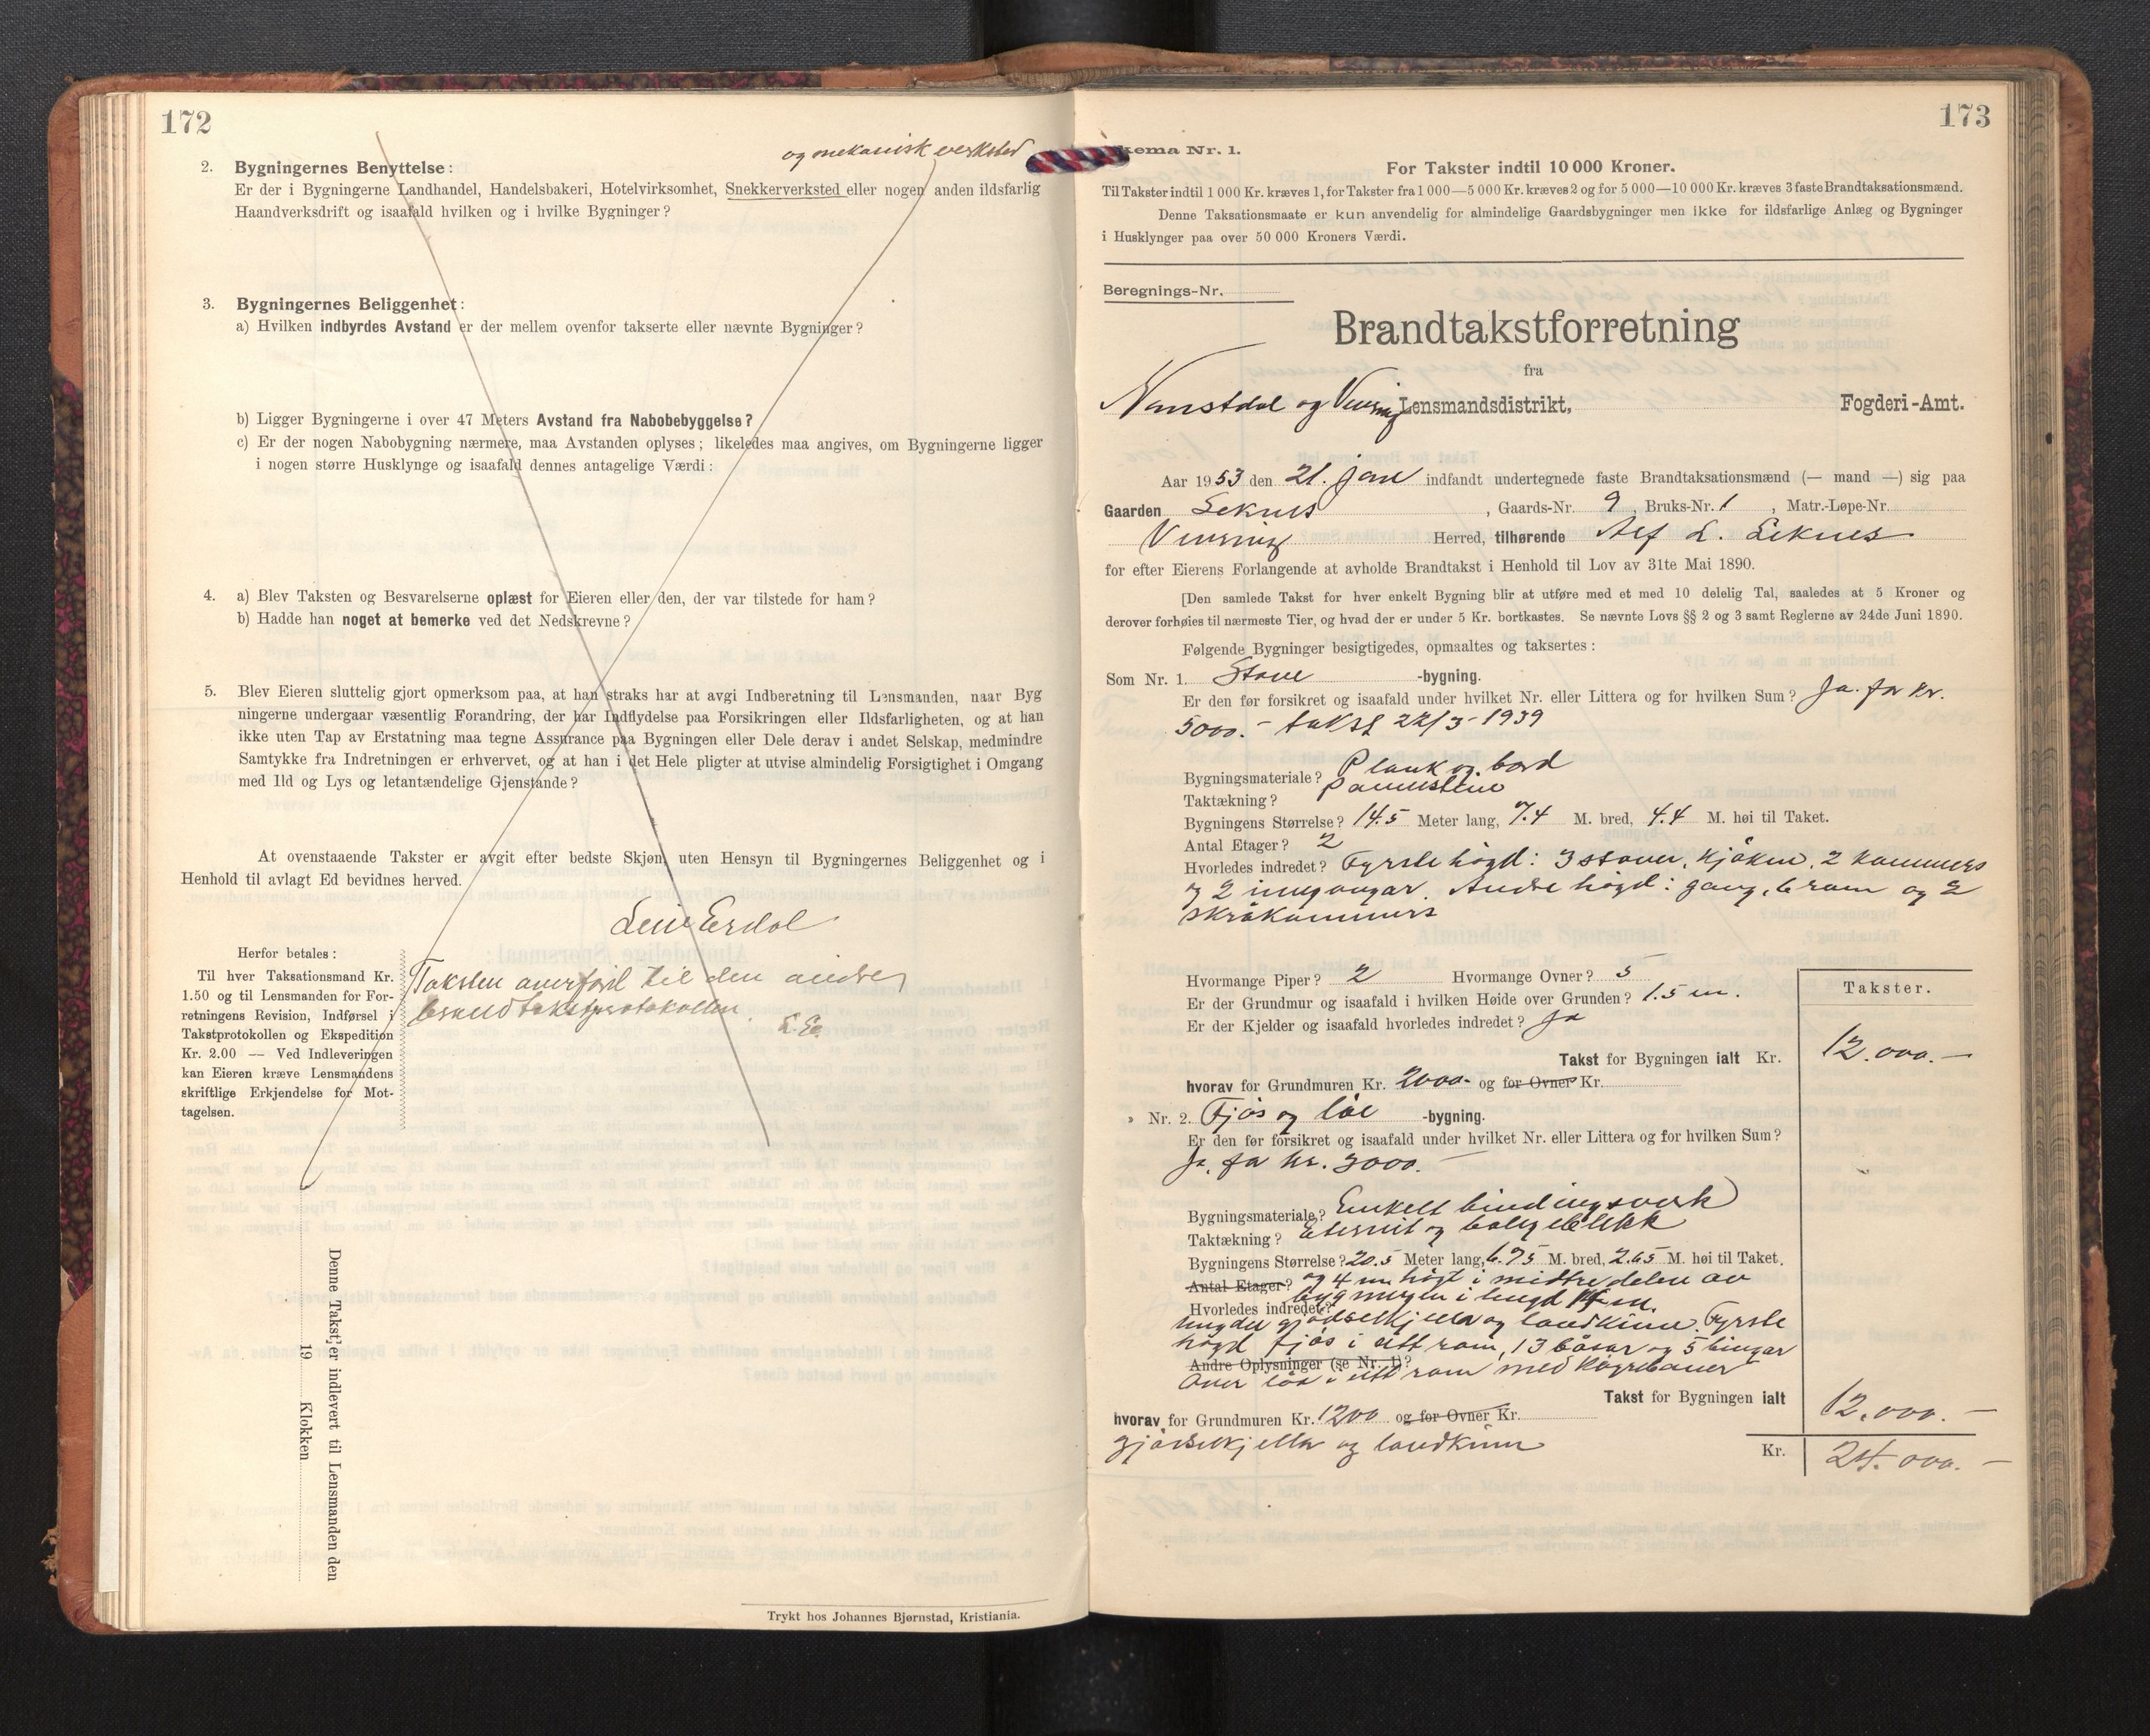 172
og mekanisk verksted
2. Bygningernes Benyttelse:
Er der i Bygningerne Landhandel, Handelsbakeri, Hotelvirksomhet, Snekkerverksted eller nogen anden ildsfarlig
Haandverksdrift og isaafald hvilken og i hvilke Bygninger?
3. Bygningernes Beliggenhet:
a) Hvilken indbyrdes Avstand er der mellem ovenfor takserte eller nævnte Bygninger?
b) Ligger Bygningerne i over 47 Meters Avstand fra Nabobebyggelse?
c) Er der nogen Nabobygning nærmere, maa Avstanden oplyses; likeledes maa angives, om Bygningerne ligger
i nogen større Husklynge og isaafald dennes antagelige Værdi:
4. a) Blev Taksten og Besvarelserne oplæst for Eieren eller den, der var tilstede for ham?
b) Hadde han noget at bemerke ved det Nedskrevne?
5. Blev Eieren sluttelig gjort opmerksom paa, at han straks har at avgi Indberetning til Lensmanden, naar Byg
ningerne undergaar væsentlig Forandring, der har Indflydelse paa Forsikringen eller Ildsfarligheten, og at han
ikke uten Tap av Erstatning maa tegne Assurance paa Bygningen eller Dele derav i andet Selskap, medmindre
Samtykke fra Indretningen er erhvervet, og at han i det Hele pligter at utvise almindelig Forsigtighet i Omgang
med Ild og Lys og letantændelige Gjenstande?
At ovenstaaende Takster er avgit efter bedste Skjøn, uten Hensyn til Bygningernes Beliggenhet og i
Henhold til avlagt Ed bevidnes herved.
Leiv Erdal
Herfor betales:
Til hver Taksationsmand Kr.
1.50 og til Lensmanden for For-
retningens Revision, Indførsel i
Takstprotokollen og Ekspedition
Kr. 2.00 — Ved Indleveringen
kan Eieren kræve Lensmandens
skriftlige Erkjendelse for Mot-
tagelsen.
Taksten overført til den andre
brandtakstprotokollen.
L.E.
Denne Takst er indlevert til Lensmanden den
19 Klokken
Trykt hos Johannes Bjørnstad, Kristiania.
173
kema Nr. 1.
For Takster indtil 10 000 Kroner.
Til Takster indtil 1 000 Kr. kræves 1, for Takster fra 1 000—5 000 Kr. kræves 2 og for 5 000—10 000 Kr. kræves 3 faste Brandtaksationsmænd.
Denne Taksationsmaate er kun anvendelig for almindelige Gaardsbygninger men ikke for ildsfarlige Anlæg og Bygninger
i Husklynger paa over 50 000 Kroners Værdi.
Beregnings-Nr.
Brandtakstforretning
fra
Naustdal og Vevring Lensmandsdistrikt, Fogderi-Amt.
Aar 1953 den 21. jan indfandt undertegnede faste Brandtaksationsmænd (— mand —) sig paa
Gaarden Leknes, Gaards-Nr. 9, Bruks-Nr. 1, Matr.-Løpe-Nr.
Vevring Herred, tilhørende Alf L. Leknes
for efter Eierens Forlangende at avholde Brandtakst i Henhold til Lov av 31te Mai 1890.
[Den samlede Takst for hver enkelt Bygning blir at utføre med et med 10 delelig Tal, saaledes at 5 Kroner og
derover forhøies til nærmeste Tier, og hvad der er under 5 Kr. bortkastes. Se nævnte Lovs §§ 2 og 3 samt Reglerne av 24de Juni 1890.
Følgende Bygninger besigtigedes, opmaaltes og taksertes:
Som Nr. 1. Stove -bygning.
Er den før forsikret og isaafald under hvilket Nr. eller Littera og for hvilken Sum? Ja. for kr.
5000.- takst 22/3-1939
Bygningsmateriale? Plank og bord
Taktækning? Pannestein
Bygningens Størrelse? 14.5 Meter lang, 7.4 M. bred, 4.4 M. høi til Taket.
Antal Etager? 2
Hvorledes indredet? Fyrste høgd: 3 stover, kjøken, 2 kammers
og 2 inngangar. Andre høgd: gang, 6 rom og 2
skråkammers
Hvormange Piper? 2 Hvormange Ovner? 5
Er der Grundmur og isaafald i hvilken Høide over Grunden? 1.5 m.
Er der Kjelder og isaafald hvorledes indredet? Ja
Takster.
Takst for Bygningen ialt Kr. 12.000.—
hvorav for Grundmuren Kr. 2000.- og for Ovner Kr.
» Nr. 2. Fjøs og løe -bygning.
Er den før forsikret og isaafald under hvilket Nr. eller Littera og for hvilken Sum?
Ja, for kr. 3000.-
Bygningsmateriale? Enkelt bindingsverk
Taktækning? Eternit og bølgeblikk
Bygningens Størrelse? 20.5 Meter lang, 6.75 M. bred, 2.65 M. høi til Taket.
Antal Etager? og 4 m høgt i midtre delen av
bygningen i lengd m.
Hvorledes indredet?
gjødselkjellar og landkinn. Fyrste
høgd fjøs i eitt rom, 13 båsar og 5 bingar
Andre Oplysninger (se Nr. 1)?
Over løa i eitt rom med køyrebruer
Takst for Bygningen ialt 12.000.—
hvorav for Grundmuren Kr. 1200 og for Ovner Kr.
gjødselkjellar og landkinn
Kr. 24.000.—